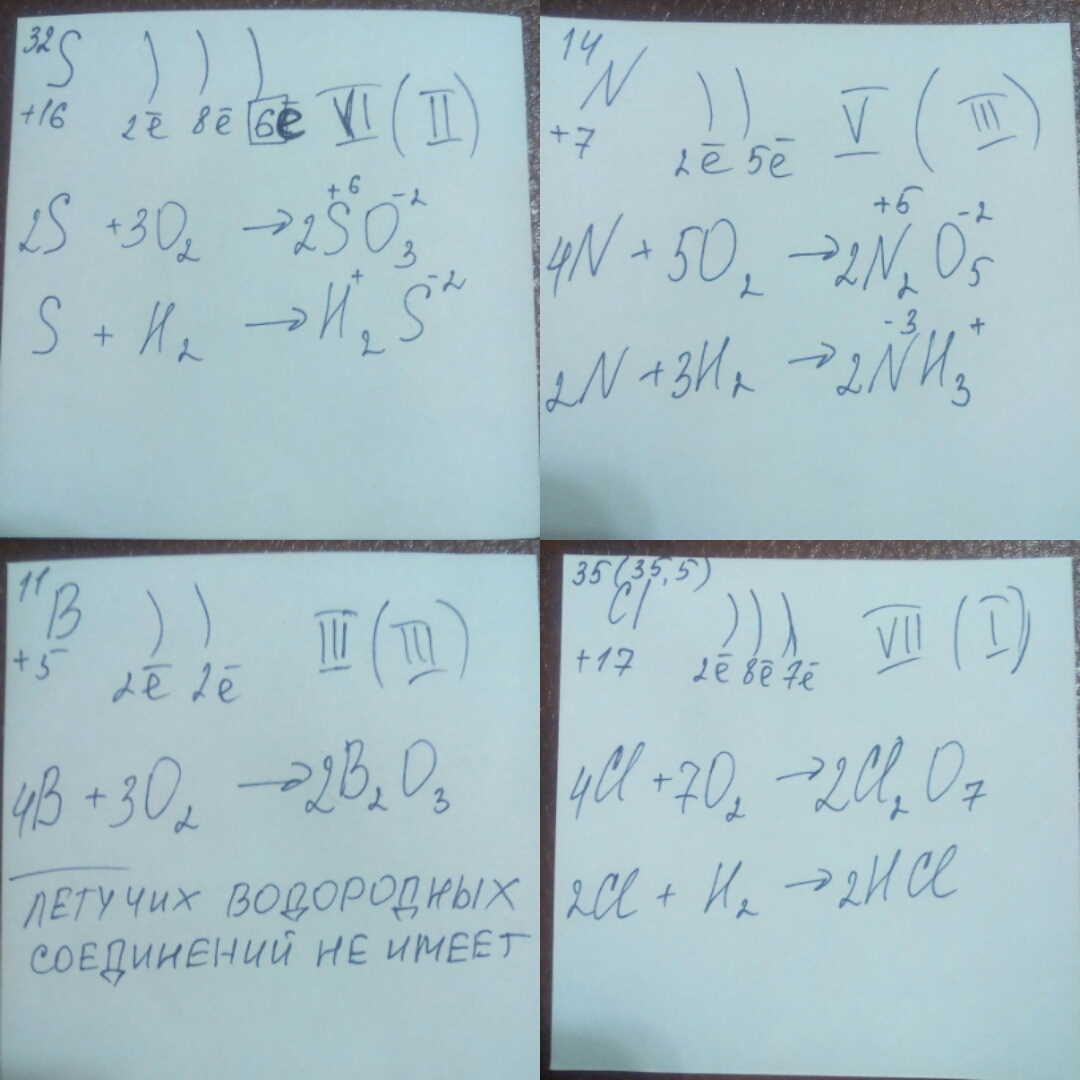 32 S ) ) )
+16 2ē 8ē 6ē VI (II)
2S + 3O₂ → 2S⁺⁶O₃⁻²
S + H₂ → H₂⁺S⁻²
14 N ) )
+7 2ē 5ē V (III)
4N + 5O₂ → 2N₂⁺⁵O₅⁻²
2N + 3H₂ → 2N⁻³H₃⁺
11 B ) )
+5 2ē 2ē III (III)
4B + 3O₂ → 2B₂O₃
ЛЕТУЧИХ ВОДОРОДНЫХ
СОЕДИНЕНИЙ НЕ ИМЕЕТ
35 (35,5)
Cl ) ) )
+17 2ē 8ē 7ē VII (I)
4Cl + 7O₂ → 2Cl₂O₇
2Cl + H₂ → 2HCl